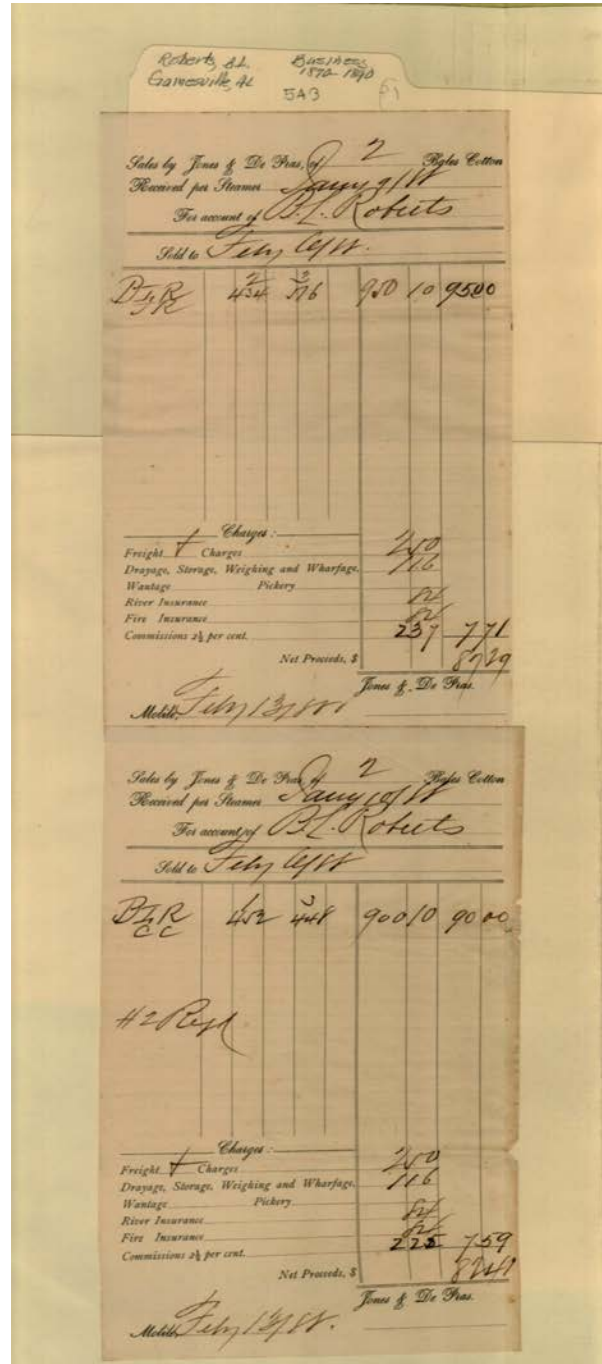 Roberts, B.L. Business
Gainesville, AL 1870-1890
5A3
Sales by Jones & De Pras, of 2 Bales Cotton
Received per Steamer Jany 9/88
For account of B. L. Roberts
Sold to Feby
BLR 2 3
434 516 950 10 9500
Charges:
Freight & Charges 200
Drayage, Storage, Weighing and Wharfage, 116
Wantage Pickery
River Insurance
Fire Insurance
Commissions 2½ per cent. 237 771
Net Proceeds, $ 8729
Jones & De Pras.
Mobile, Feby 13/88
Sales by Jones & De Pras, of 2 Bales Cotton
Received per Steamer Jany 10/88
For account of B. L. Roberts
Sold to Feby
BLR 1 3
CC 452 448 900 10 9000
#2 Rejd
Charges:
Freight & Charges 200
Drayage, Storage, Weighing and Wharfage, 116
Wantage Pickery
River Insurance
Fire Insurance
Commissions 2½ per cent. 225 759
Net Proceeds, $ 8241
Jones & De Pras.
Mobile, Feby 13/88.